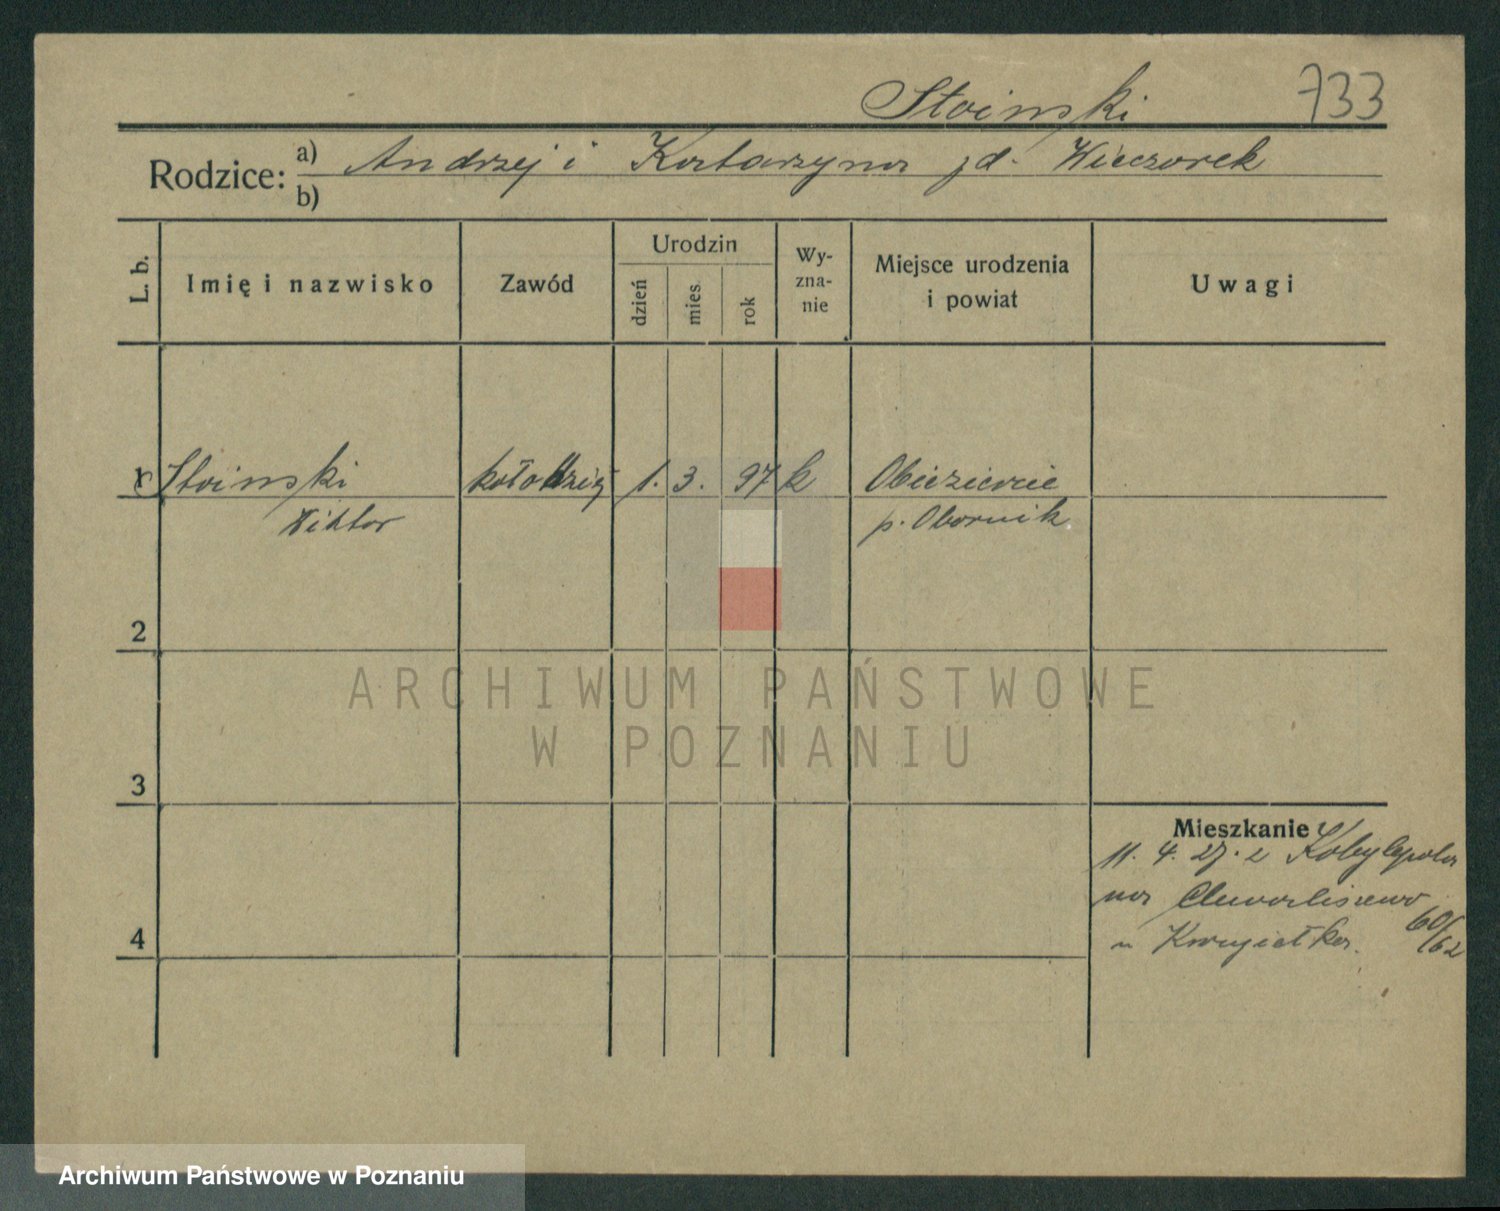 Stoinski 733
Rodzice: a) Andrzej i Katarzyna zd. Wieczorek
b)
L. b. Imię i nazwisko Zawód Urodzin dzień mies. rok Wy-zna-nie Miejsce urodzenia i powiat Uwagi
1 Stoinski kołodziej 1. 3. 97 k Obiezierze
Wiktor p. Obornik
2
ARCHIWUM PAŃSTWOWE
W POZNANIU
3
Mieszkanie
11. 4. 27. z Kobylepola
na Chwaliszewo 60/62
u
4
Archiwum Państwowe w Poznaniu